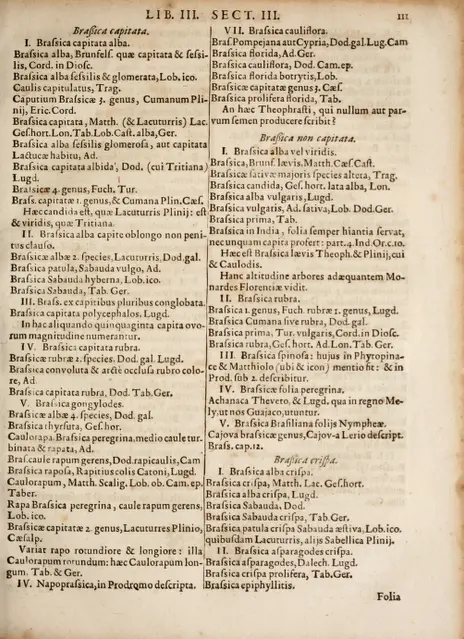 LIB. III. SECT. III. 111
Braſsica capitata.
I. Braſsica capitata alba.
Braſsica alba, Brunfelſ. quæ capitata & ſeſsi-
lis, Cord. in Dioſc.
Braſsica alba ſeſsilis & glomerata, Lob. ico.
Caulis capitulatus, Trag.
Caputium Braſsicæ 3. genus, Cumanum Pli-
nij, Eric. Cord.
Braſsica capitata, Matth. (& Lacuturris) Lac.
Geſ.hort.Lon.Tab.Lob.Caſt.alba, Ger.
Braſsica alba ſeſsilis glomeroſa, aut capitata
Lactucæ habitu, Ad.
Braſsica capitata albida, Dod. (cui Tritiana)
Lugd.
Braſsicæ 4. genus, Fuch. Tur.
Braſs. capitatæ 1. genus, & Cumana Plin. Cæſ.
Hæc candida eſt, quæ Lacuturris Plinij: eſt
& viridis, quæ Tritiana.
II. Braſsica alba capite oblongo non peni-
tus clauſo.
Braſsicæ albæ 2. ſpecies, Lacuturris, Dod. gal.
Braſsica patula, Sabauda vulgo, Ad.
Braſsica Sabauda hyberna, Lob. ico.
Braſsica Sabauda, Tab. Ger.
III. Braſs. ex capitibus pluribus conglobata.
Braſsica capitata polycephalos, Lugd.
In hac aliquando quinquaginta capita ovo-
rum magnitudine numerantur.
IV. Braſsica capitata rubra.
Braſsicæ rubræ 2. ſpecies, Dod. gal. Lugd.
Braſsica convoluta & arctè occluſa rubro colo-
re, Ad.
Braſsica capitata rubra, Dod. Tab. Ger.
V. Braſsica gongylodes.
Braſsicæ albæ 4. ſpecies, Dod. gal.
Braſsica thyrſuta, Geſ. hor.
Caulorapa. Braſsica peregrina, medio caule tur-
binata & rapata, Ad.
Braſs caule rapum gerens, Dod. rapicaulis, Cam
Braſsica rapoſa, Rapitius colis Catoni, Lugd.
Caulorapum, Matth. Scalig. Lob. ob. Cam. ep.
Taber.
Rapa Braſsica peregrina, caule rapum gerens,
Lob. ico.
Braſsicæ capitatæ 2. genus, Lacuturres Plinio,
Cæſalp.
Variat rapo rotundiore & longiore: illa
Caulorapum rotundum: hæc Caulorapum lon-
gum. Tab. & Ger.
IV. Napobraſsica, in Prodromo deſcripta.
VII. Braſsica cauliflora.
Braſ. Pompejana aut Cypria, Dod. gal. Lug. Cam
Braſsica florida, Ad. Ger.
Braſsica cauliflora, Dod. Cam. ep.
Braſsica florida botrytis, Lob.
Braſsicæ capitatæ genus 3. Cæſ.
Braſsica prolifera florida, Tab.
An hæc Theophraſti, qui nullum aut par-
vum ſemen producere ſcribit?
Braſsica non capitata.
I. Braſsica alba vel viridis.
Braſsica, Brunf. lævis. Matth. Cæſ. Caſt.
Braſsicæ ſativæ majoris ſpecies altera, Trag.
Braſsica candida, Geſ. hort. lata alba, Lon.
Braſsica alba vulgaris, Lugd.
Braſsica vulgaris, Ad. ſativa, Lob. Dod. Ger.
Braſsica prima, Tab.
Braſsica in India, folia ſemper hiantia ſervat,
nec unquam capita profert: part. 4. Ind. Or. c. 10.
Hæc eſt Braſsica lævis Theoph. & Plinij, cui
& Caulodis.
Hanc altitudine arbores adæquantem Mo-
nardes Florenciæ vidit.
II. Braſsica rubra.
Braſsica 1. genus, Fuch. rubræ 1. genus, Lugd.
Braſsica Cumana ſive rubra, Dod. gal.
Braſsica prima, Tur. vulgaris, Cord. in Dioſc.
Braſsica rubra, Geſ. hort. Ad. Lon. Tab. Ger.
III Braſsica ſpinoſa: hujus in Phytopina-
ce & Matthiolo (ubi & icon) mentio fit: & in
Prod. ſub 2. deſcribitur.
IV. Braſsicæ folia peregrina.
Achanaca Theveto, & Lugd. qua in regno Me-
ly. ut nos Guajaco, utuntur.
V. Braſsica Braſiliana foliis Nympheæ.
Cajova braſsicæ genus, Cajov-a Lerio deſcript.
Braſs. cap. 12.
Braſsica criſpa.
I. Braſsica alba criſpa.
Braſsica criſpa, Matth. Lac. Geſ. hort.
Braſsica alba criſpa, Lugd.
Braſsica Sabauda, Dod.
Braſsica Sabauda criſpa, Tab. Ger.
Braſsica patula criſpa Sabauda æſtiva, Lob. ico.
quibuſdam Lacuturris, alijs Sabellica Plinij.
II. Braſsica aſparagodes criſpa.
Braſsica aſparagodes, Dalech. Lugd.
Braſsica criſpa prolifera, Tab. Ger.
Braſsica epiphyllitis.
Folia